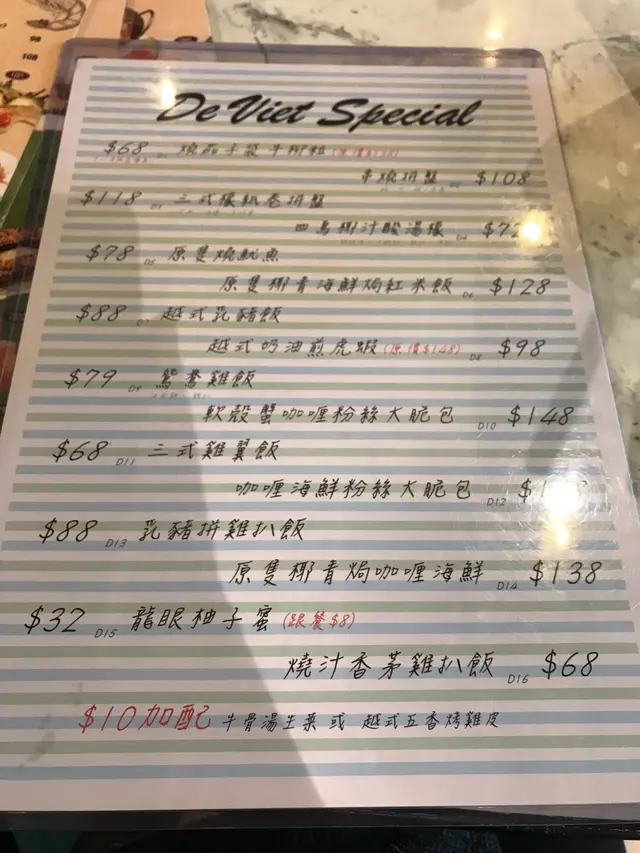 98
108
De Viet Special
$68 燒茄子袋牛柳粒
串燒拼盤 $108
$118 三式米紙卷拼盤
椰汁酸湯
$78 D5 原隻燒魷魚
原隻椰青海鮮焗紅米飯 D6 $128
$88 越式乳豬飯
越式奶油煎虎蝦 (原價$148) D8 $98
$79 D9 鴛鴦雞飯
軟殼蟹咖喱粉絲大脆包 D10 $148
$68 D11 三式雞翼飯
咖喱海鮮粉絲大脆包 D12
$88 D13 乳豬拼雞扒飯
原隻椰青焗咖喱海鮮 D14 $138
$32 D15 龍眼柚子蜜 (跟餐$8)
燒汁香茅雞扒飯 D16 $68
$10加配 牛骨湯生菜 或 越式五香烤雞皮